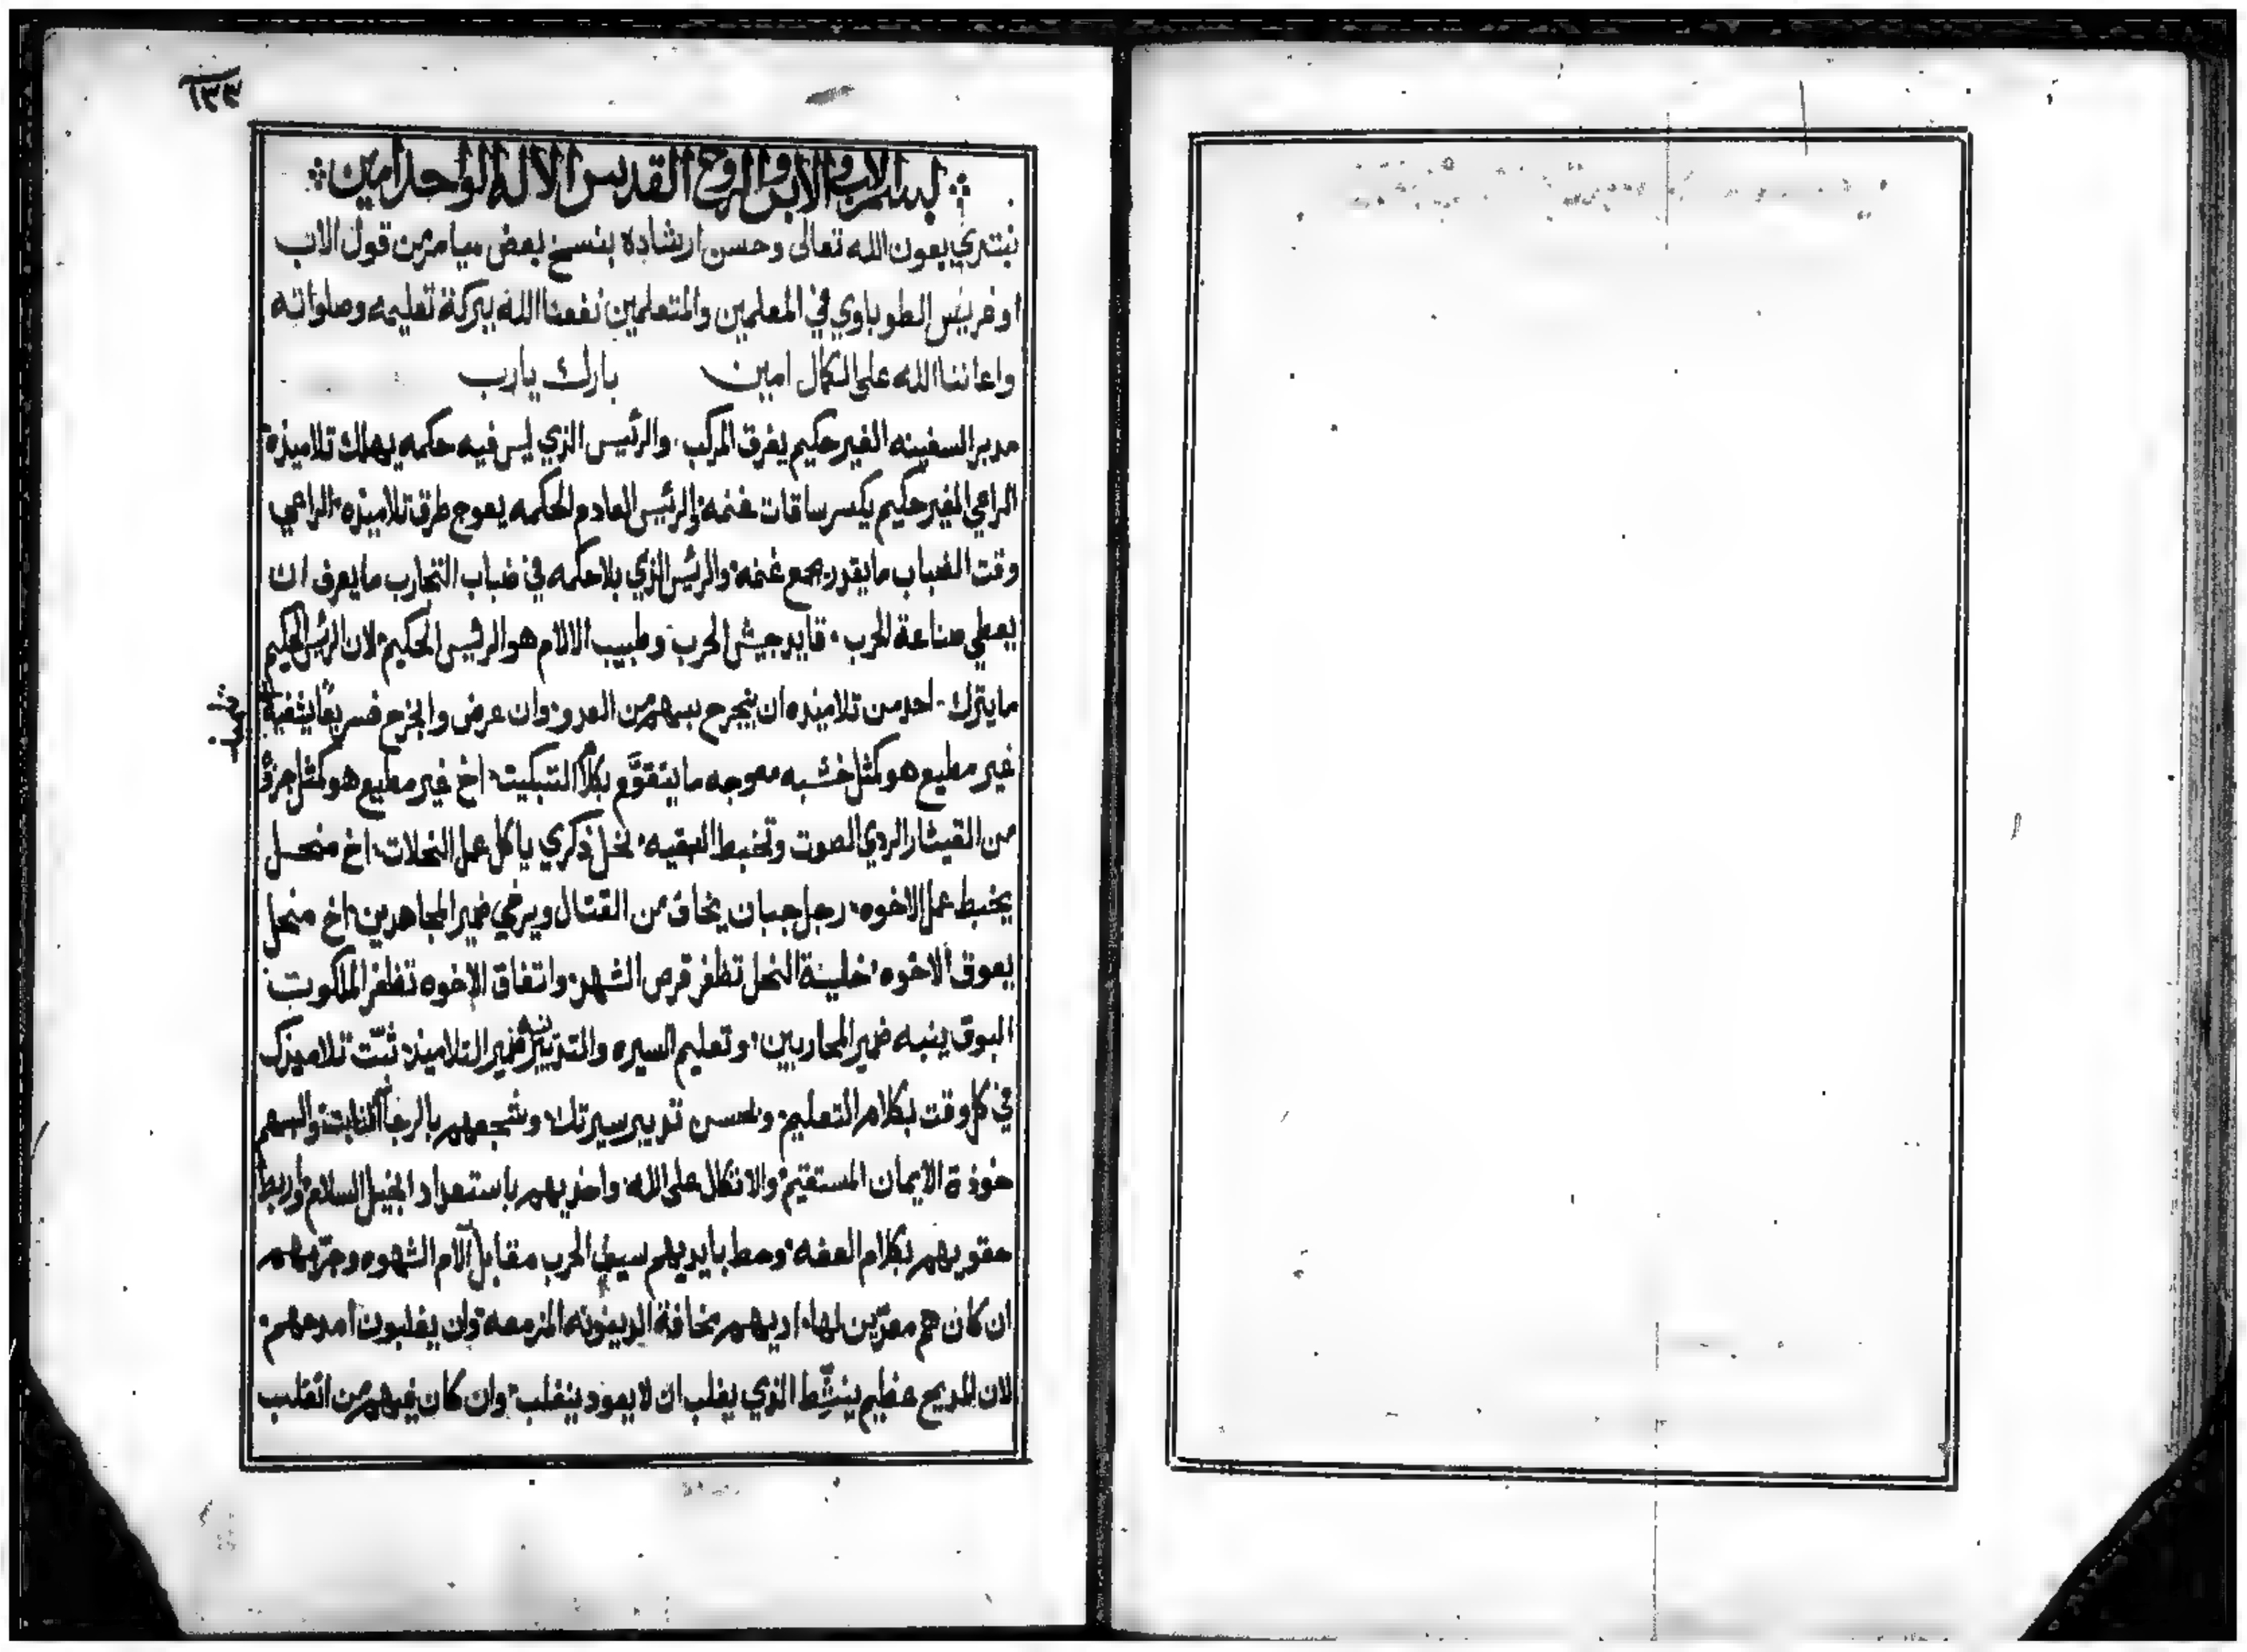 ١٣٣
بسم الاب والابن والروح القدس الاله الواحد امين
نبتدي بعون الله تعالى وحسن ارشاده بنسخ بعض ميامر من قول الاب
اوغريس الطوباوي في المعلمين والمتعلمين نفعنا الله ببركة تعليمه وصلواته
واعاننا الله على الكمال امين بارك يارب
مدبر السفينه الغير حكيم يغرق المركب. والرئيس الذي ليس فيه حكمه يهلك تلاميذه
الراعي الغير حكيم يكسر ساقات غنمه والرئيس العادم الحكمه يعوج طرق تلاميذه الراعي
وقت الضباب ما يقدر يجمع غنمه والرئيس الذي بلا حكمه في ضباب التجارب ما يعرف ان
يعطي صناعة الحرب. قايد جيش الحرب وطبيب الالام هو الرئيس الحكيم لان الرئيس الحكيم
ما يترك احد من تلاميذه ان ينجرح بسهم من العدو وان عرض وانجرح فسريعا يشفيه
غير مطيع هو كمثل خشبه معوجه ما يتقوّم بكلام التبكيت اخ غير مطيع هو كمثل
من القيثار الردي الصوت وتخبط البقيه نحل ذكري ياكل عمل النحلات اخ منحل
يخبط عمل الاخوه رجل جبان يخاف من القتال ويرخي ضمير المجاهدين اخ منحل
يعوق الاخوه خلية النحل تظفر قرص الشهد واتفاق الاخوه تظفر الملكوت
البوق ينبه ضمير المحاربين وتعليم السيره والتدبير ينبه ضمير التلاميذ ثبّت تلاميذك
في كل وقت بكلام التعليم وحسن تدبير سيرتك وشجعهم بالرجا الثابت والبسهم
خوذة الايمان المستقيم والاتكال على الله واحذيهم باستعداد انجيل السلام واربط
حقويهم بكلام العفه وحط بايديهم سيف الحرب مقابل آلام الشهوه وجرّبهم
ان كان هم معدّين لها اديهم مخافة الدينونه المزمعه وان يغلبون امدحهم
لان المديح عظيم ينشّط الذي يغلب ان لا يعود ينغلب وان كان فيهم من انغلب